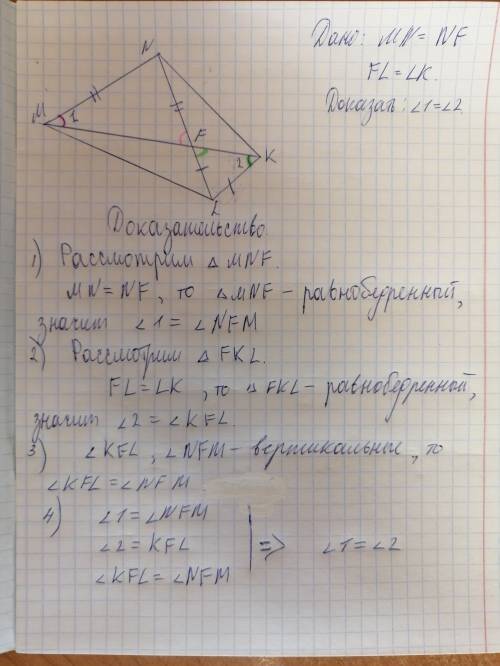 Дано: MN = NF
FL = LK.
Доказать: ∠1 = ∠2
N
M
1
F
2
K
L
Доказательство
1) Рассмотрим △ MNF.
MN = NF, то △MNF – равнобедренный,
значит ∠1 = ∠NFM
2) Рассмотрим △ FKL.
FL = LK, то △ FKL – равнобедренный,
значит ∠2 = ∠KFL.
3) ∠KFL, ∠NFM – вертикальные, то
∠KFL = ∠NFM
4) ∠1 = ∠NFM
∠2 = KFL => ∠1 = ∠2
∠KFL = ∠NFM